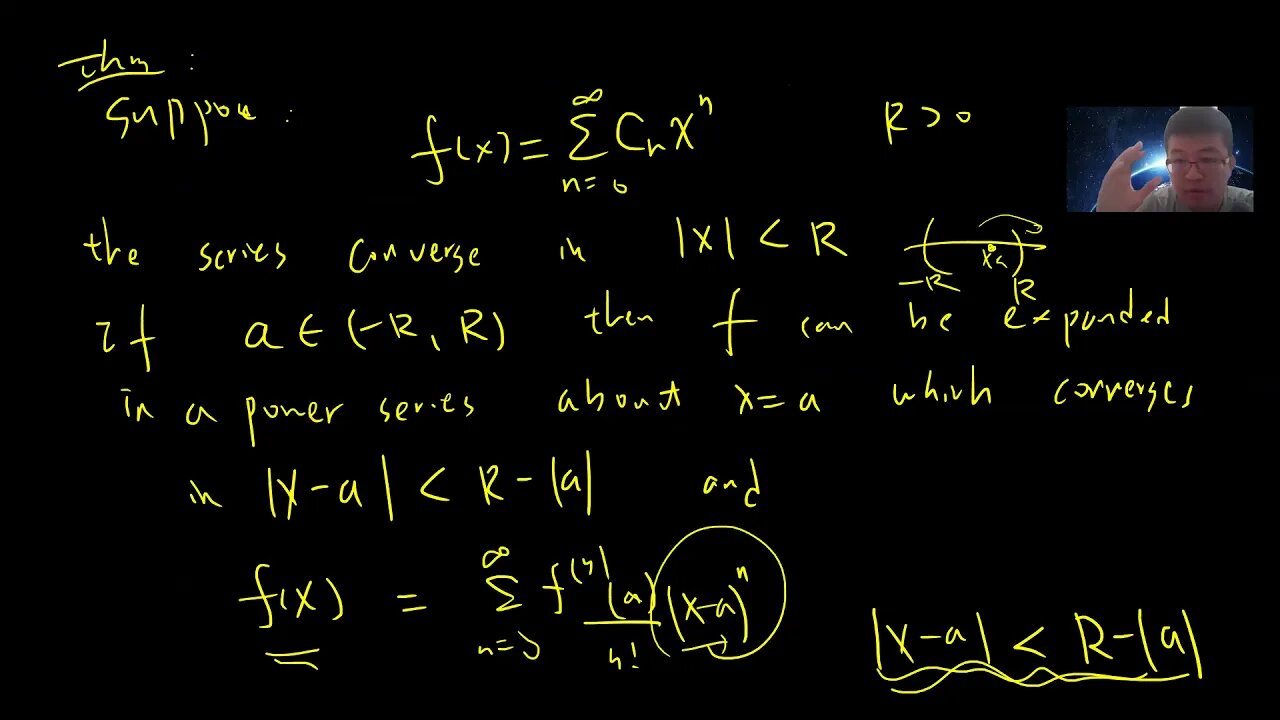 thm :
Suppose :
f(x) = ∑_{n=0}^{∞} C_n x^n   R > 0
the series converse in |x| < R   ( x a ) -R R
if a ∈ (-R, R) then f can be expanded
in a power series about x = a which converges
in |x-a| < R-|a| and
f(x) = ∑_{n=0}^{∞} f^{(n)}(a)/n! (x-a)^n
|x-a| < R-|a|